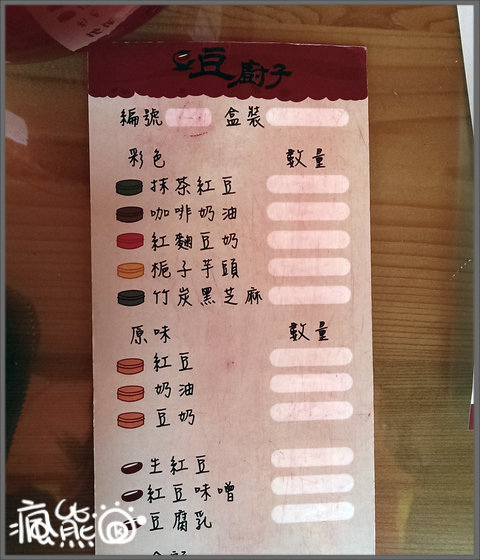 豆廚子
編號 盒裝
彩色 數量
抹茶紅豆
咖啡奶油
紅麴豆奶
梔子芋頭
竹炭黑芝麻
原味 數量
紅豆
奶油
豆奶
生紅豆
紅豆味噌
豆腐乳
瘋熊